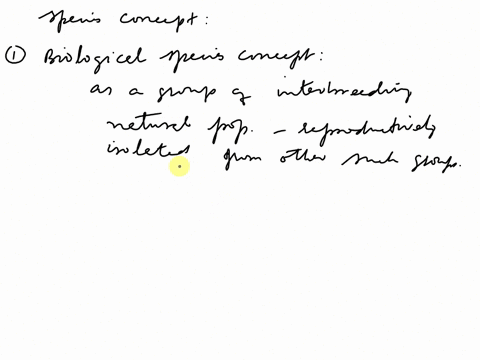 species concept:
① Biological species concept:
as a group of interbreeding
natural pop. – reproductively
isolated from other such groups.